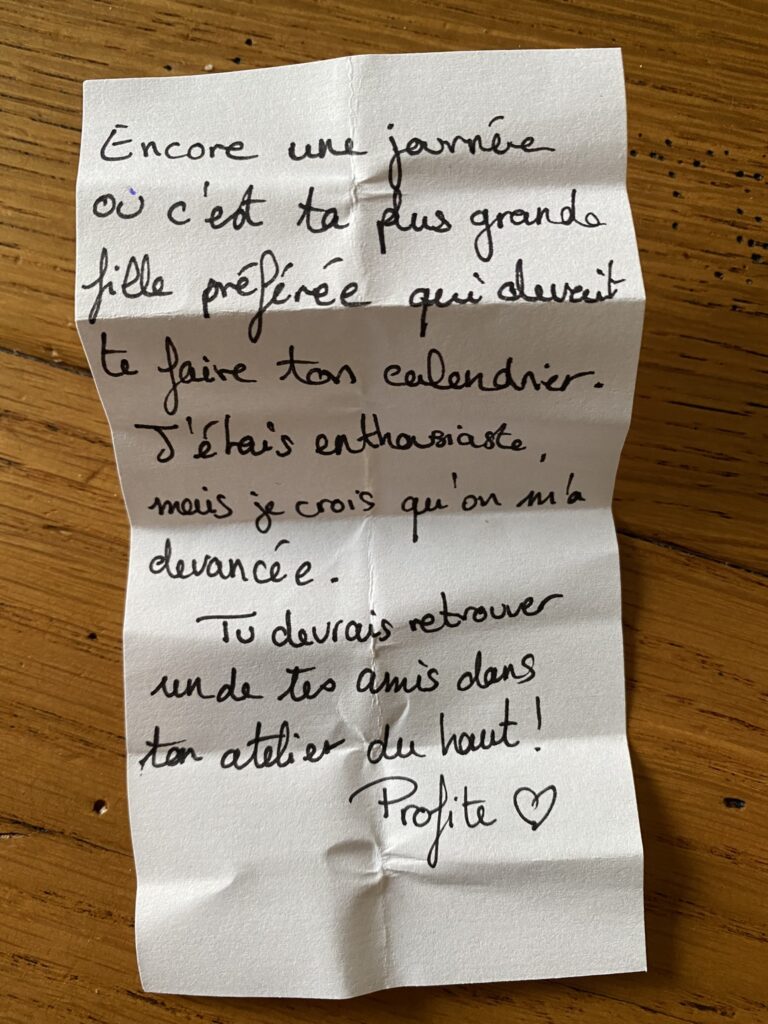 Encore une journée
où c'est ta plus grande
fille préférée qui devait
te faire ton calendrier.
J'étais enthousiaste,
mais je crois qu'on m'a
devancée.
Tu devrais retrouver
un de tes amis dans
ton atelier du haut !
Profite ♡